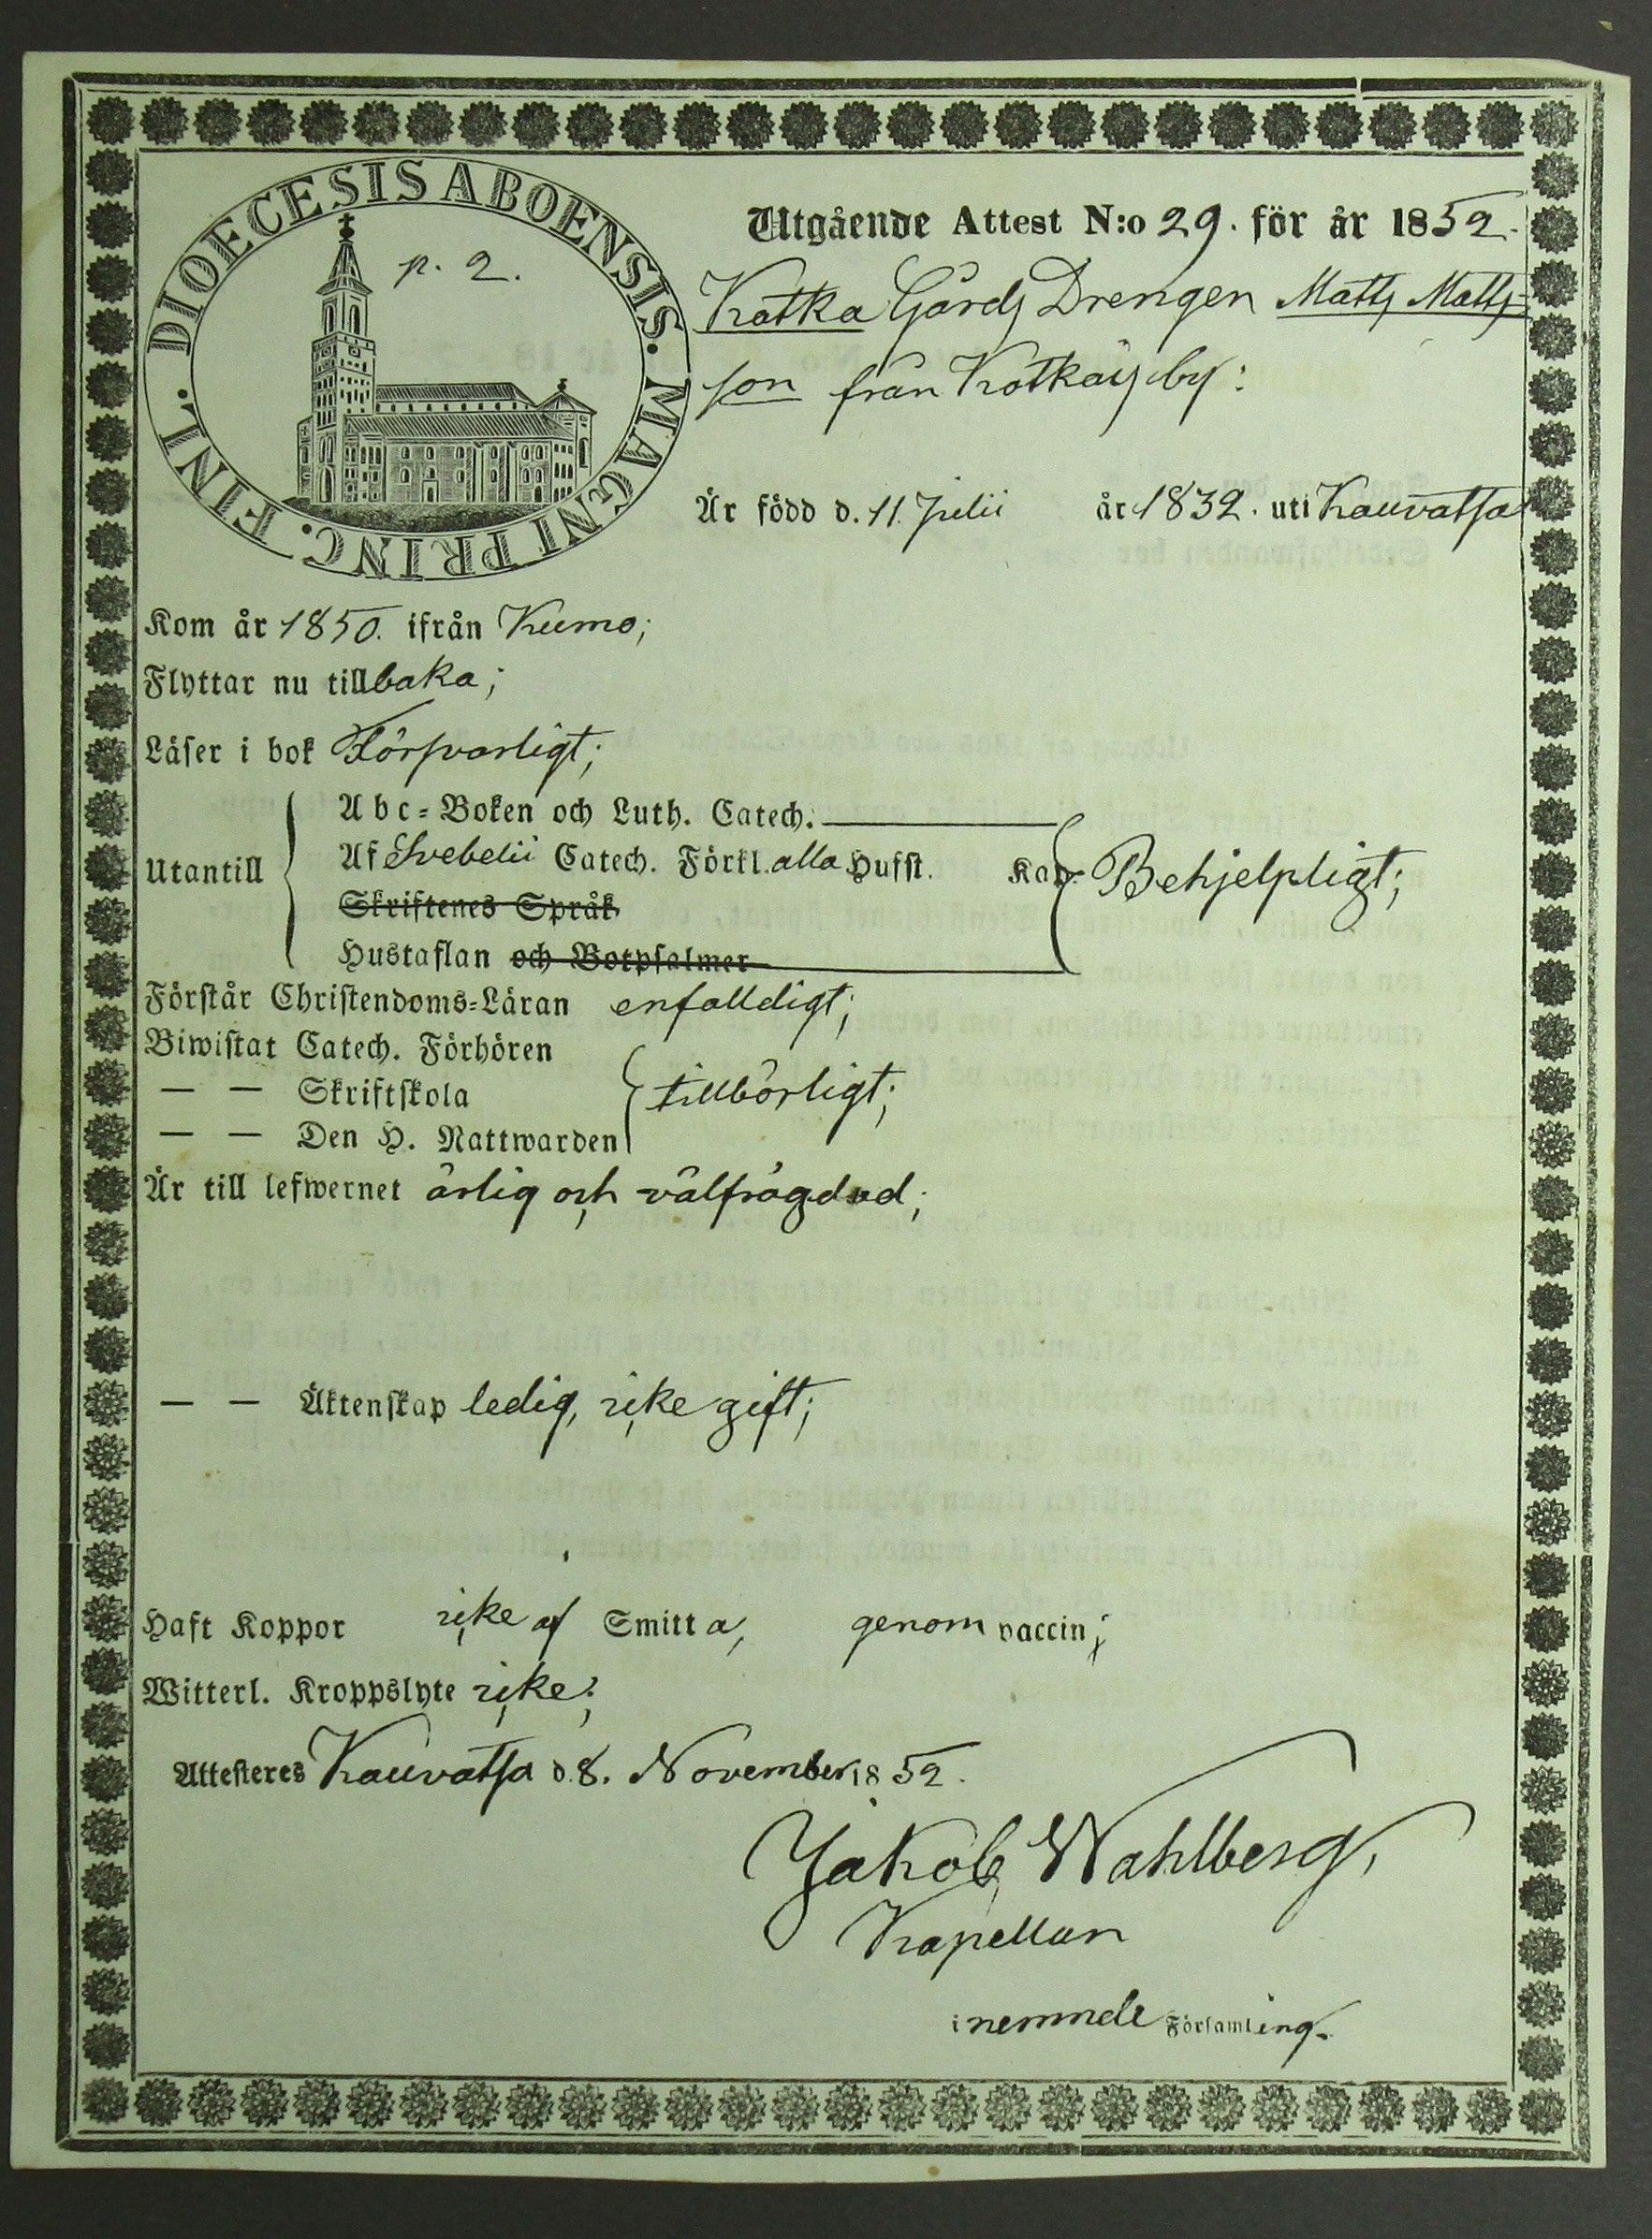 DIOECESIS ABOENSIS. MAGNI PRINC. FINL.
p. 2.
Utgående Attest N:o 29. för år 1852.
Kotka Gårds Drengen Matts Matts-
son från Kotkais by:
Är född d. 11. Julii år 1832. uti Kauvatsa
Kom år 1850. ifrån Kumo;
Flyttar nu tillbaka;
Läser i bok Försvarligt;
Abc-Boken och Luth. Catech.
Utantill Af Svebelii Catech. Förkl. alla Hufst. Kap. Behjelpligt;
Skriftenes Språk
Hustaflan och Botpsalmer
Förstår Christendoms-Läran enfalldigt;
Biwistat Catech. Förhören
— — Skriftskola tillbörligt;
— — Den H. Nattwarden
Är till lefwernet ärlig och välfrägdad;
— — Äktenskap ledig, icke gift;
Haft Koppor icke af Smitta, genom vaccin;
Witterl. Kroppslyte icke;
Attesteres Kauvatsa d. 8. November 1852.
Jakob Wahlberg,
Kapellan
i nemnde Församling.